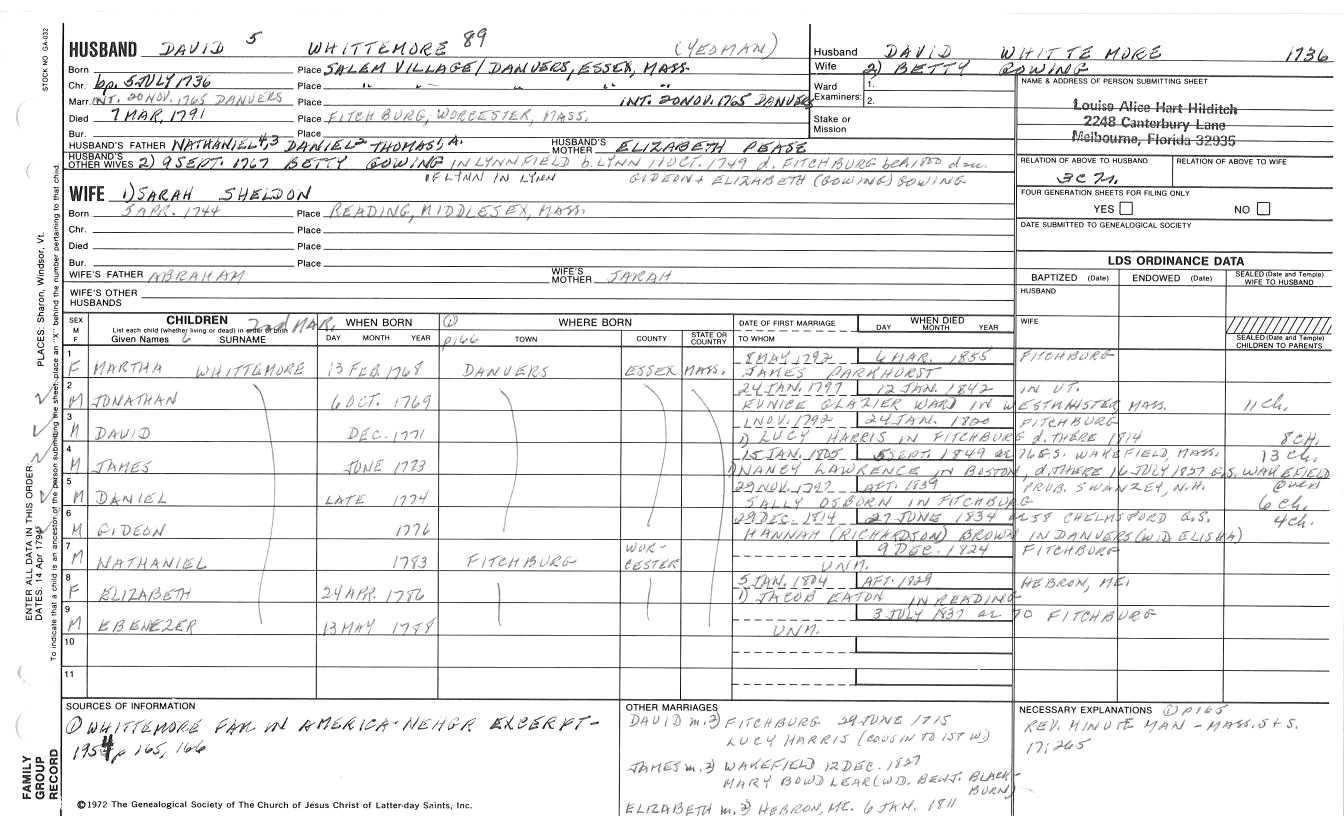 STOCK NO GA-032
HUSBAND DAVID 5 WHITTEMORE 89 (YEOMAN)
Born Place SALEM VILLAGE/DANVERS, ESSEX, MASS.
Chr. bp. 5 JULY 1736 Place " " " " "
Marr. INT. 20 NOV. 1765 DANVERS Place INT. 20 NOV. 1765 DANVERS
Died 7 MAR. 1791 Place FITCHBURG, WORCESTER, MASS.
Bur. Place
HUSBAND'S FATHER NATHANIEL 4,3 DANIEL 2 THOMAS 1 A. HUSBAND'S MOTHER ELIZABETH PEASE
HUSBAND'S OTHER WIVES 2) 9 SEPT. 1767 BETTY GOWING IN LYNNFIELD b. LYNN 11 OCT. 1749 d. FITCHBURG bef. 1800 dau.
OF LYNN IN LYNN GIDEON + ELIZABETH (GOWING) GOWING
WIFE 1) SARAH SHELDON
Born 5 APR. 1744 Place READING, MIDDLESEX, MASS.
Chr. Place
Died Place
Bur. Place
WIFE'S FATHER ABRAHAM WIFE'S MOTHER SARAH
WIFE'S OTHER HUSBANDS
Husband DAVID WHITTEMORE 1736
Wife 2) BETTY GOWING
Ward 1.
Examiners: 2.
Stake or Mission
NAME & ADDRESS OF PERSON SUBMITTING SHEET
Louise Alice Hart Hilditch
2248 Canterbury Lane
Melbourne, Florida 32935
RELATION OF ABOVE TO HUSBAND RELATION OF ABOVE TO WIFE
3C
FOUR GENERATION SHEETS FOR FILING ONLY
YES NO
DATE SUBMITTED TO GENEALOGICAL SOCIETY
LDS ORDINANCE DATA
BAPTIZED (Date) ENDOWED (Date) SEALED (Date and Temple) WIFE TO HUSBAND
HUSBAND
WIFE
SEALED (Date and Temple) CHILDREN TO PARENTS
SEX M F CHILDREN 2nd MAR. WHEN BORN ① WHERE BORN DATE OF FIRST MARRIAGE WHEN DIED
List each child (whether living or dead) in order of birth
Given Names SURNAME DAY MONTH YEAR p166 TOWN COUNTY STATE OR COUNTRY TO WHOM DAY MONTH YEAR
1 8 MAY 1792 6 MAR. 1855 FITCHBURG
F MARTHA WHITTEMORE 13 FEB. 1768 DANVERS ESSEX MASS. JAMES PARKHURST
2 24 JAN. 1797 12 JAN. 1842 IN VT.
M JONATHAN 6 OCT. 1769 EUNICE GLAZIER WARD IN WESTMINSTER MASS. 11 Ch.
3 1 NOV. 1792 24 JAN. 1820 FITCHBURG
M DAVID DEC. 1771 1) LUCY HARRIS IN FITCHBURG d. THERE 1814 8 CH.
4 15 JAN. 1805 5 SEPT. 1849 ae 76 G.S. WAKEFIELD, MASS. 13 Ch.
M JAMES JUNE 1773 1) NANCY LAWRENCE IN BOSTON, d. THERE 16 JULY 1827 G.S. WAKEFIELD
5 29 NOV. 1797 AFT. 1839 PROB. SWANZEY, N.H. over
M DANIEL LATE 1774 SALLY OSBORN IN FITCHBURG 6 Ch.
6 23 DEC. 1814 27 JUNE 1834 ae 58 CHELMSFORD G.S. 4 Ch.
M GIDEON 1776 HANNAH (RICHARDSON) BROWN IN DANVERS (WID ELISHA)
7 9 DEC. 1824 FITCHBURG
M NATHANIEL 1783 FITCHBURG WORCESTER UNM.
8 5 JAN. 1804 AFT. 1829 HEBRON, ME.
F ELIZABETH 24 APR. 1786 1) JACOB EATON IN READING
9 3 JULY 1837 ae 70 FITCHBURG
M EBENEZER 13 MAY 1788 UNM.
10
11
SOURCES OF INFORMATION
① WHITTEMORE FAM IN AMERICA-NEHGR EXCERPT-
1954 p 165, 166
OTHER MARRIAGES
DAVID m. 2) FITCHBURG 29 JUNE 1715
LUCY HARRIS (COUSIN TO 1ST W.)
JAMES m. 2) WAKEFIELD 12 DEC. 1827
MARY BOWD LEAR (WD. BENJ. BLACK-
BURN)
ELIZABETH m. 2) HEBRON, ME. 6 JAN. 1811
NECESSARY EXPLANATIONS ① p165
REV. MINUTE MAN - MASS. S+S.
17:265
©1972 The Genealogical Society of The Church of Jesus Christ of Latter-day Saints, Inc.
FAMILY GROUP RECORD
ENTER ALL DATA IN THIS ORDER:
DATES: 14 Apr 1794 PLACES: Sharon, Windsor, Vt.
To indicate that a child is an ancestor of the person submitting the sheet, place an "X" behind the number pertaining to that child.